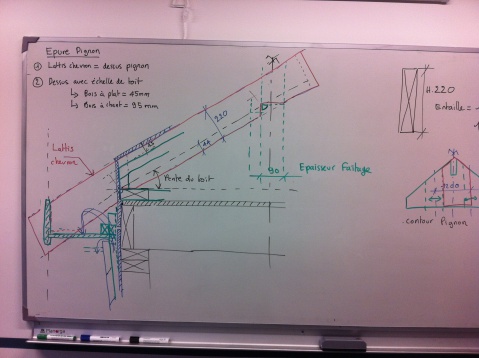 Epure Pignon
① Lattis chevron = dessus pignon
② Dessus avec échelle de toit
↳ Bois à plat = 45mm
↳ Bois à chant = 95mm
H.220
Entaille =
220
Lattis
chevron
Pente du toit
90
Epaisseur Faîtage
.contour Pignon